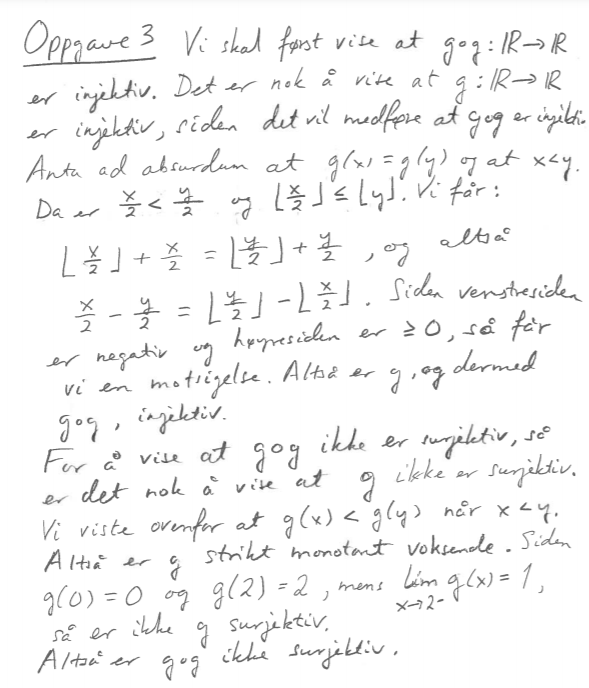 Oppgave 3 Vi skal først vise at g∘g : ℝ → ℝ
er injektiv. Det er nok å vise at g : ℝ → ℝ
er injektiv, siden det vil medføre at g∘g er injektiv.
Anta ad absurdum at g(x) = g(y) og at x<y.
Da er x/2 < y/2 og ⌊x/2⌋ ≤ ⌊y⌋. Vi får:
⌊x/2⌋ + x/2 = ⌊y/2⌋ + y/2, og altså
x/2 - y/2 = ⌊y/2⌋ - ⌊x/2⌋. Siden venstresiden
er negativ og høyresiden er ≥ 0, så får
vi en motsigelse. Altså er g, og dermed
g∘g, injektiv.
For å vise at g∘g ikke er surjektiv, så
er det nok å vise at g ikke er surjektiv.
Vi viste ovenfor at g(x) < g(y) når x < y.
Altså er g strikt monotont voksende. Siden
g(0) = 0 og g(2) = 2, mens lim x→2- g(x) = 1,
så er ikke g surjektiv.
Altså er g∘g ikke surjektiv.